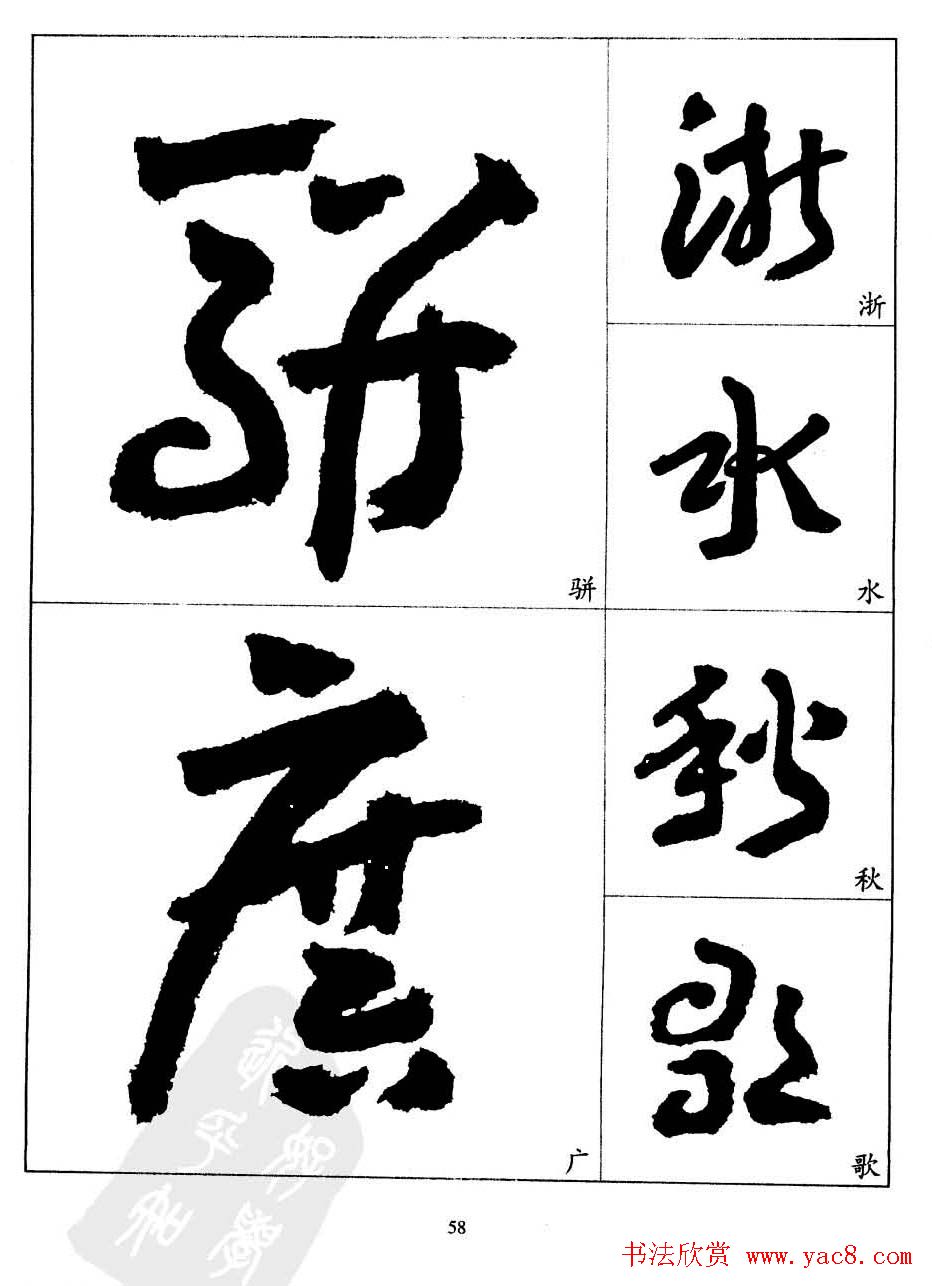 骈
广
浙
水
秋
歌
58
书法欣赏 www.yac8.com